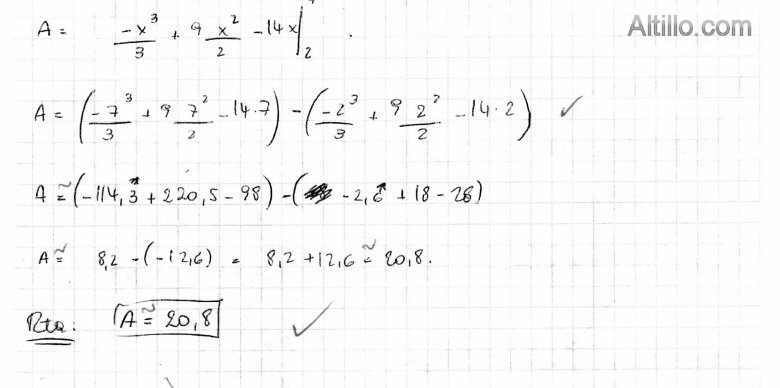 Altillo.com
A = -x³/3 + 9 x²/2 - 14x |₂
A = (-7³/3 + 9 7²/2 - 14.7) - (-2³/3 + 9 2²/2 - 14·2) ✓
A ≅ (-114,3 + 220,5 - 98) - (-2,6 + 18 - 28)
A ≅ 8,2 - (-12,6) = 8,2 + 12,6 ≅ 20,8.
Rta: A ≅ 20,8 ✓